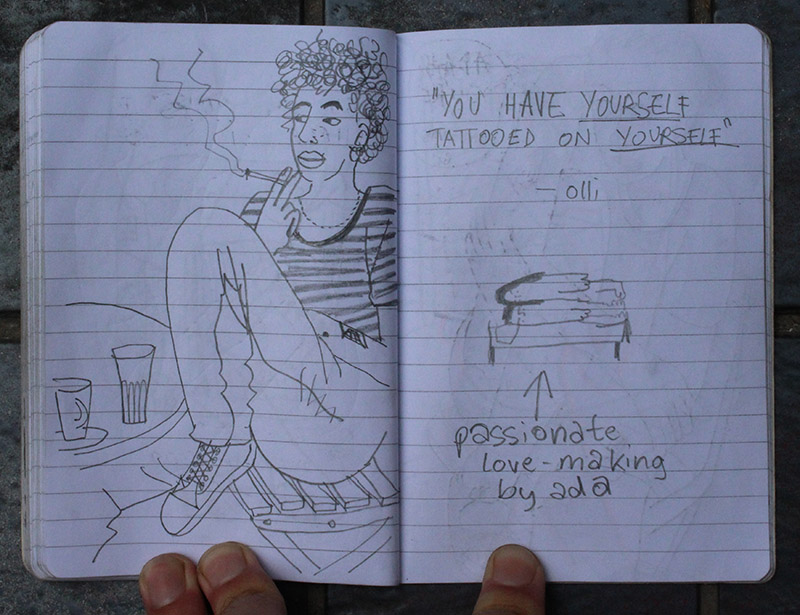 "YOU HAVE YOURSELF
TATTOOED ON YOURSELF"
— olli
passionate
love-making
by ada